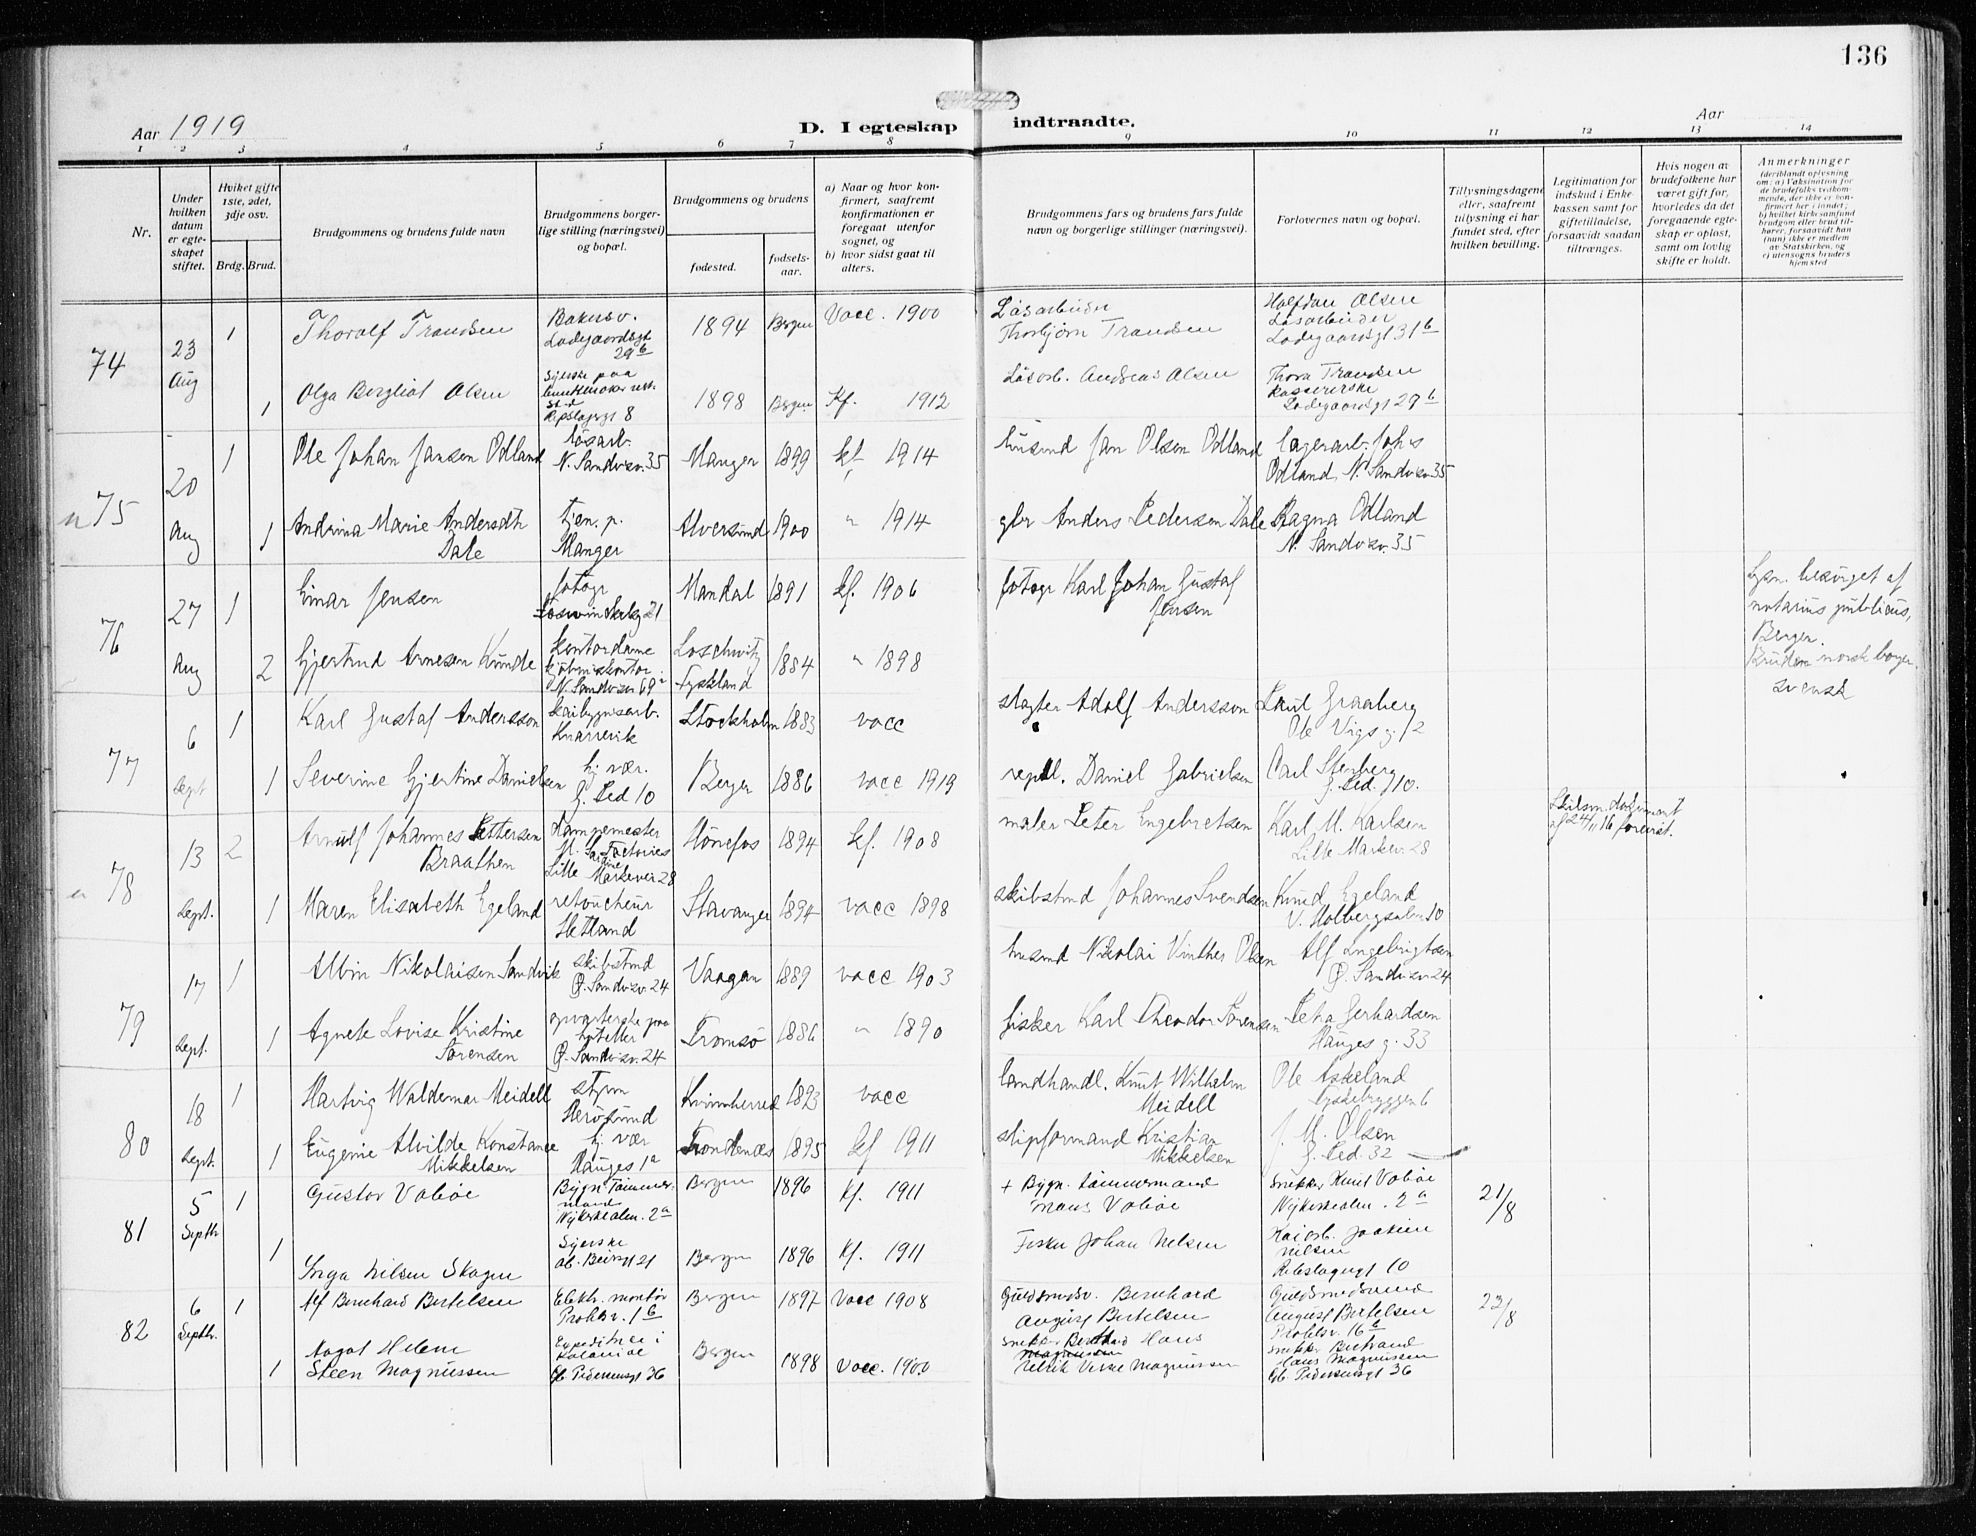 136
Aar 1919
D. I egteskap indtraadte.
Aar
1 2 3 4 5 6 7 8 9 10 11 12 13 14
Nr.
Under hvilken datum er egteskapet stiftet.
Hvilket gifte 1ste, 2det, 3dje osv.
Brdg. Brud.
Brudgommens og brudens fulde navn
Brudgommens borgerlige stilling (næringsvei) og bopæl.
Brudgommens og brudens
fødested.
fødselsaar.
a) Naar og hvor konfirmert, saafremt konfirmationen er foregaat utenfor sognet, og
b) hvor sidst gaat til alters.
Brudgommens fars og brudens fars fulde navn og borgerlige stillinger (næringsvei).
Forlovernes navn og bopæl.
Tillysningsdagene eller, saafremt tillysning ei har fundet sted, efter hvilken bevilling.
Legitimation for indskud i Enkekassen samt for giftetilladelse, forsaavidt saadan tiltrænges.
Hvis nogen av brudefolkene har været gift før, hvorledes da det foregaaende egteskap er opløst, samt om lovlig skifte er holdt.
Anmerkninger (deriblandt oplysning om: a) Vaksination for de brudefolks vedkommende, der ikke er konfirmert her i landet; b) hvilket kirkesamfund brudgom eller brud tilhører, forsaavidt han (hun) ikke er medlem av Statskirken, og c) utensogns bruders hjemsted
74 23 Aug
1 Thoralf Trandsen Ladegaardsgt 29b 1894 Bergen Vacc. 1900
Løsarbeider Thorbjørn Trandsen
Halfdan Olsen Løsarbeider Ladegaardsgt 31b
1 Olga Bergliot Olsen Syerske paa 8 1898 Bergen Kf. 1912
Løsarb. Andreas Olsen
Thora Trandsen Kassererske Ladegaardsgt 29b
75 20 Aug
1 Ole Johan Jansen Odland løsarb. N. Sandvsv. 35 Manger 1899 kf 1914
husmd Jan Olsen Odland
lagerarb. Johs Odland, N. Sandvsv. 35
1 Andrina Marie Andersdtr Dale tjen. p. Manger Alversund 1900 " 1914
gbr Anders Pedersen Dale
Ragna Odland N. Sandvsv. 35
76 27 Aug
1 Einar Jensen fotogr 21 Mandal 1891 kf. 1906
fotogr Karl Johan Gustaf Jensen
2 Gjertrud Arnesen Kunde kontordame N. Sandvsv 69 Loschwitz Tyskland 1884 " 1898
Lysn. besørget af notarius publicus, Bergen.
Bruden norsk borger.
svensk
77 6 Sept
1 Karl Gustaf Andersson skibbygnisarb. Knarrevik Stockholm 1883 vacc
slagter Adolf Andersson
Paul Graaberg Ole Vigs g. 12
1 Severine Gjertine Danielsen hj. vær. 10 Bergen 1886 vacc 1919
repsl. Daniel Gabrielsen
Carl Stenberg 10.
78 13 Sept.
2 Arnulf Johannes Pettersen Braathen Lille Markevei 28 Hønefos 1894 kf. 1908
maler Peter Engebretsen
Karl M. Karlsen Lille Markev 28
Skilsm. dokument af 24/11 16 forevist.
1 Maren Elisabeth Egeland retoucheur Hetland Stavanger 1894 vacc 1898
skibstmd Johannes Svendsen
Knud Egeland V. Holbergsalm 10
79 17 Sept.
1 Albin Nikolaisen Sandvik skibstmd Ø. Sandvsv. 24 Vaagan 1889 vacc 1903
husmd Nikolai Vinther Olsen
Alf Engebrigtsen Ø. Sandvsv. 24
1 Agnete Lovise Kristine Sørensen opvarterske paa Ø. Sandvsv. 24 Tromsø 1886 " 1890
fisker Karl Theodor Sørensen
Petra Gerhardsen Hauges g. 33
80 18 Sept.
1 Hartvig Waldemar Meidell styrm Herøsund Kvinnherred 1893 vacc
landhandl. Knut Wilhelm Meidell
Ole Askeland Tyskebryggen 6
1 Eugenie Alvilde Konstance Mikkelsen hj. vær Hauges 1a Trondenæs 1895 kf 1911
slipformand Kristian Mikkelsen
J. M. Olsen 32
81 5 Septbr
1 Gustav Valøe Bygn. Tømmermand Nykirkealm. 2a Bergen 1896 Kf. 1911
+ Bygn. tømmermand Mons Valøe
Snekker Knut Valøe Nykirkealm. 2a
21/8
1 Inga Nilsen Skagen Syerske 21 Bergen 1896 Kf. 1911
Fisker Johan Nilsen
Kaiarb. Joakim Nilsen 10
82 6 Septbr.
1 Alf Bernhard Bertelsen Elektr. montør 1b Bergen 1897 Vacc 1908
Guldsmedsv. Bernhard August Bertelsen
Guldsmedsvend August Bertelsen 16b
23/8
1 Aagot Helene Steen Magnussen Expeditrice i Gb. Pedersensgt 36 Bergen 1898 Vacc. 1900
Snekker Hans Magnussen
Snekker Hans Magnussen Gb. Pedersensgt 36